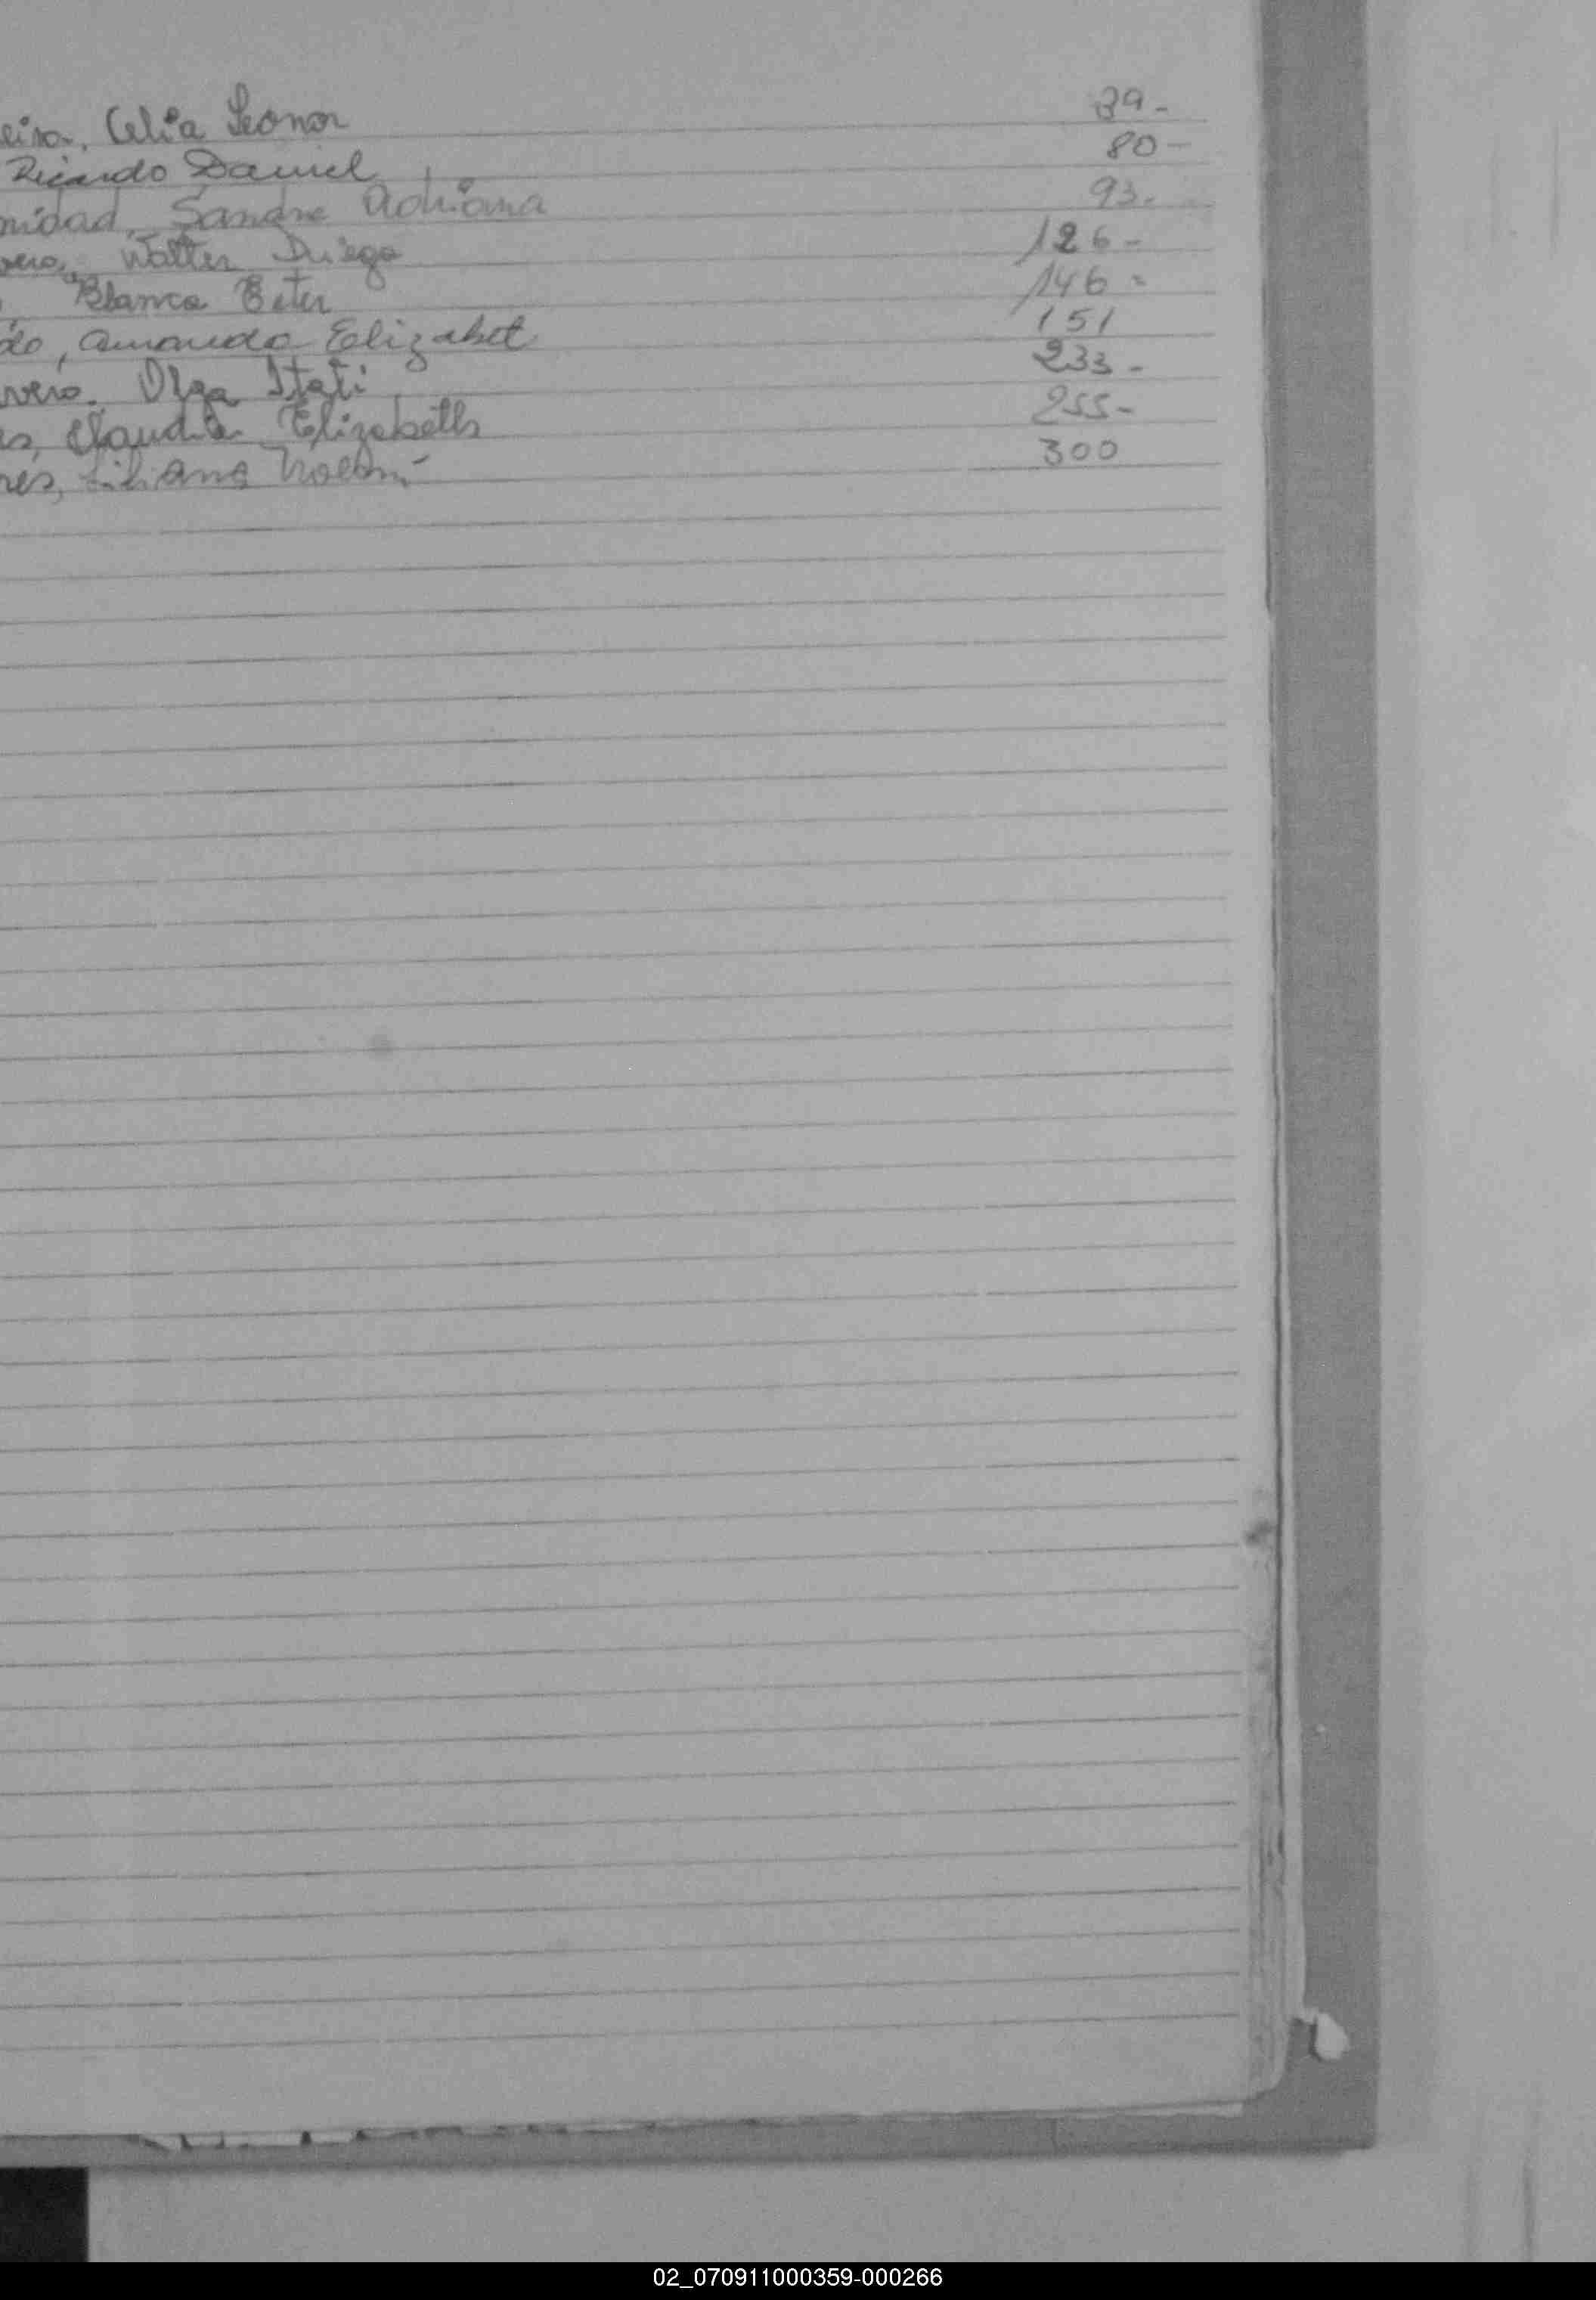 eira, Celia Leonor 39-
Ricardo Daniel 80-
nidad, Sandra Adriana 93.
vero, Walter Diego 126-
, Blanca Ester 146-
do, Amanda Elizabet 151
vero. Olga Itatí 233-
es, Claudia Elizabeth 255-
res, Liliana Noemí 300
02_070911000359-000266